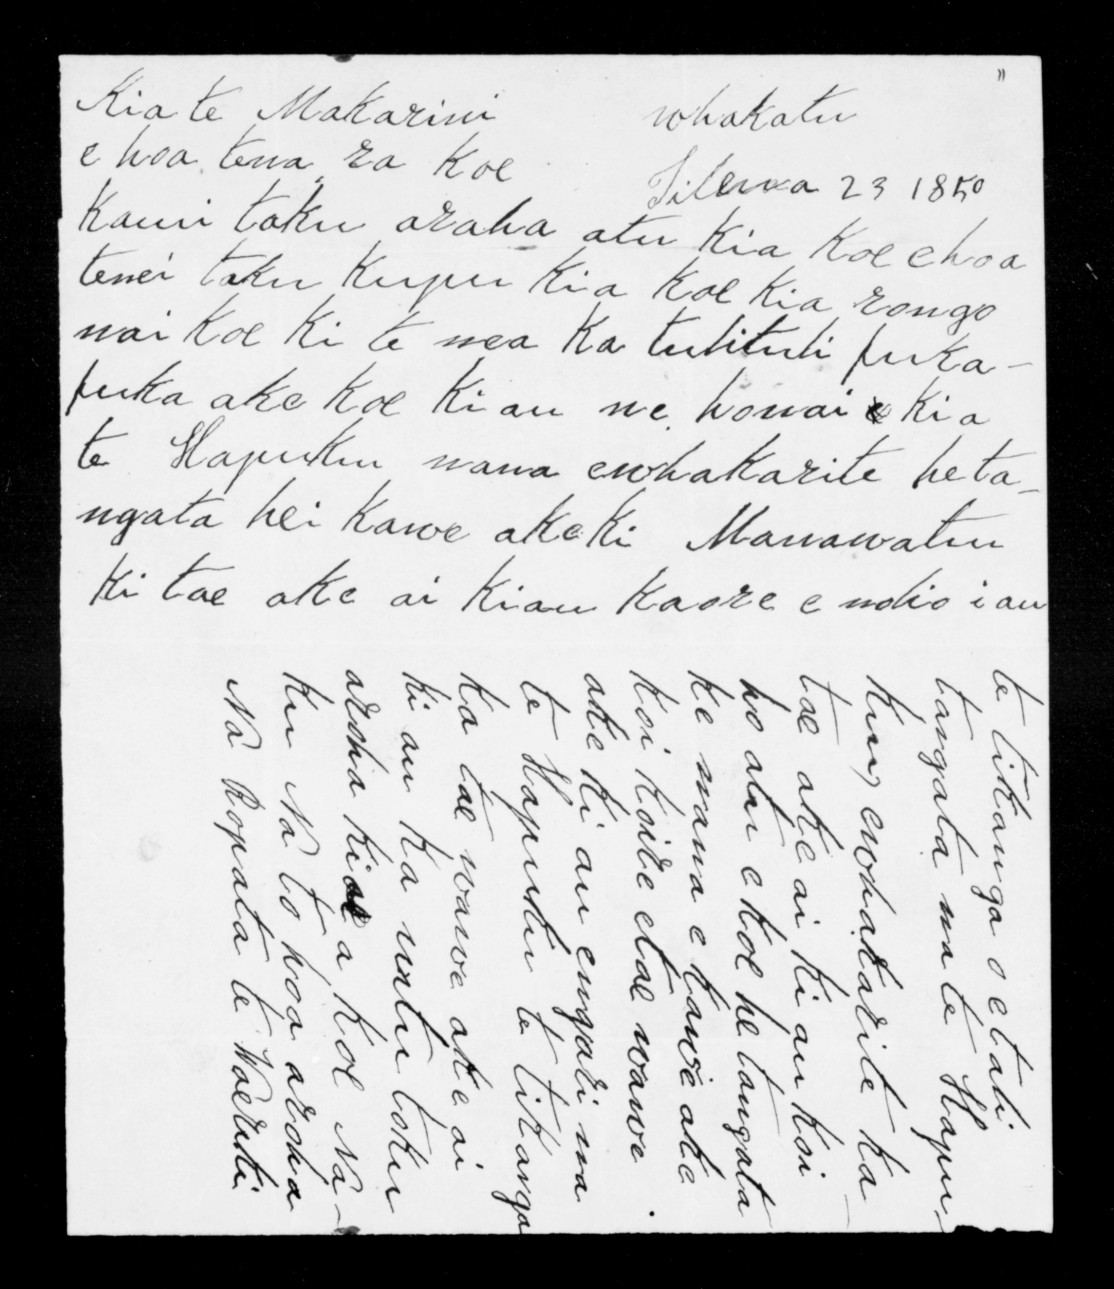 Kia te Makarini
whakatu
e hoa tena ra koe
Tilema 23 1850
Kanui taku aroha atu kia koe e hoa
tenei taku kupu kia koe kia rongo
mai koe ki te mea ka tuhituhi puka-
puka ake koe ki au me homai kia
te Hapuku mana ewhakarite he ta-
ngata hei kawe ake ki Manawatu
ki tae ake ai ki au kaore e mohio i au
te tikanga o etahi
tangata ma te Hapu-
ku, ewhakarite ka
tae ake ai ki au koi
ho atu e koe he tangata
ke mana e kawe ake
koi kore etae wawe
ake ki au engari ma
te Hapuku te tikanga
ka tae wawe ake ai
ki au ka mutu toku
aroha kia a koe Na-
ku Na to hoa aroha
Na Ropata te